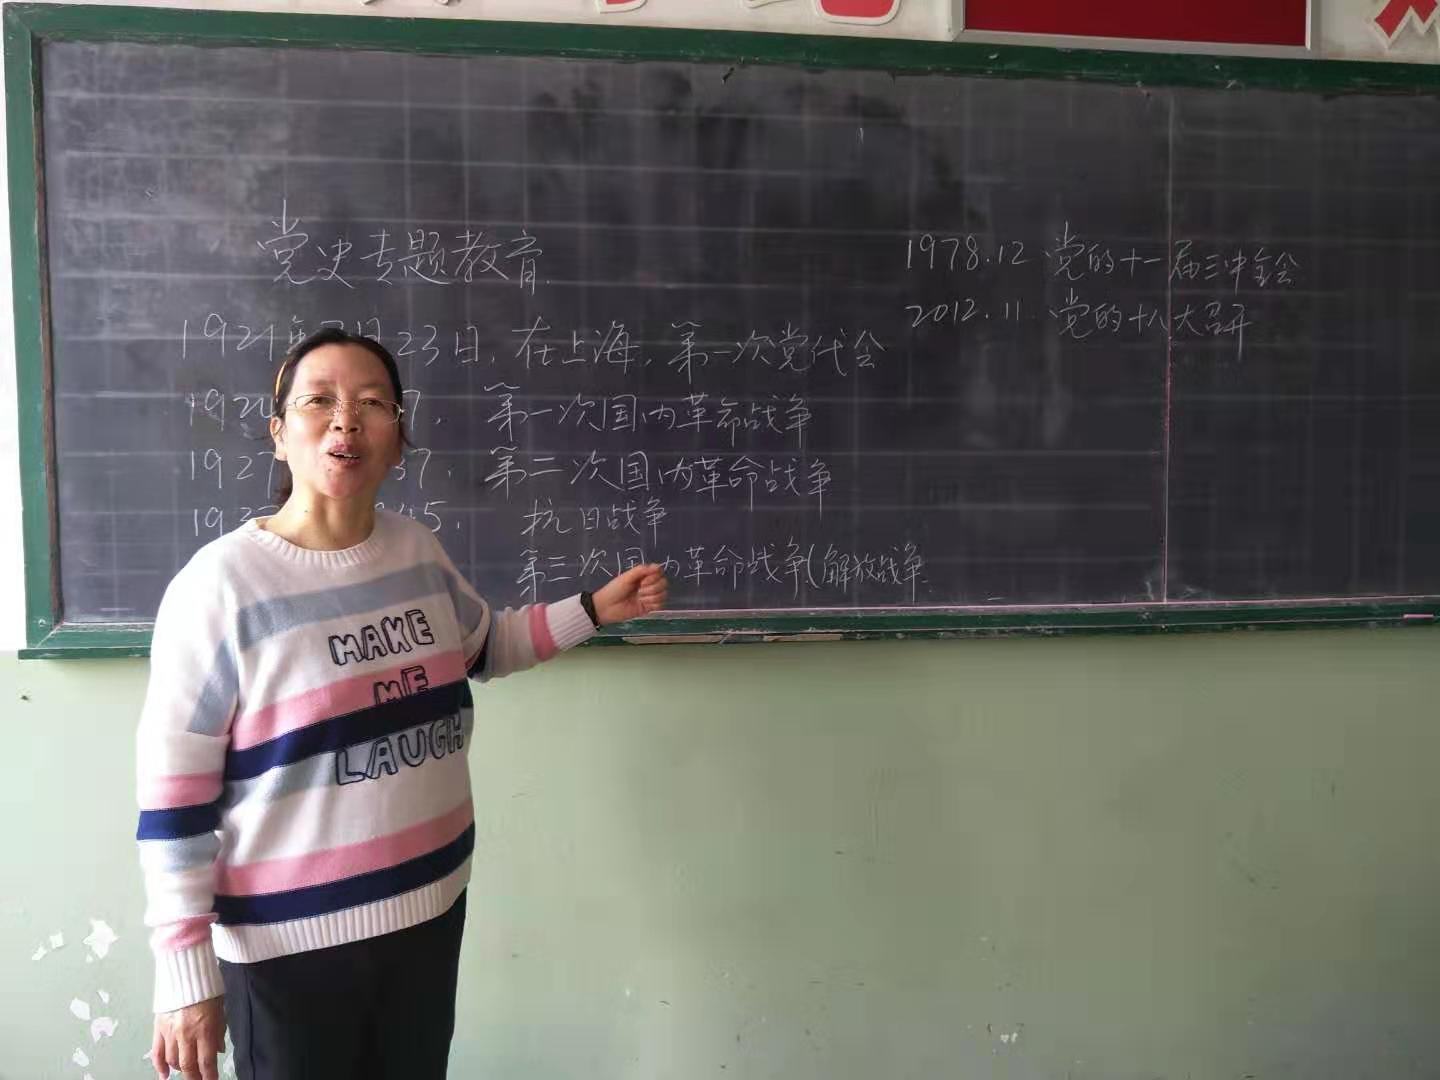 党史专题教育.
1921年 23日,在上海,第一次党代会
192 7, 第一次国内革命战争
1927 37. 第二次国内革命战争
193 45. 抗日战争
第三次国内革命战争(解放战争
1978.12 党的十一届三中全会
2012.11. 党的十八大召开
MAKE
ME
LAUGH